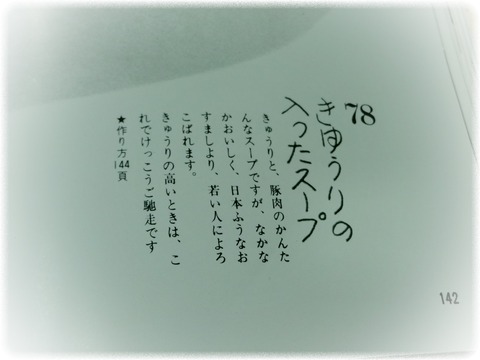 78
きゅうりの
入ったスープ
きゅうりと、豚肉のかんた
んなスープですが、なかな
かおいしく、日本ふうなお
すましより、若い人によろ
こばれます。
きゅうりの高いときは、こ
れでけっこうご馳走です
★作り方144頁
142